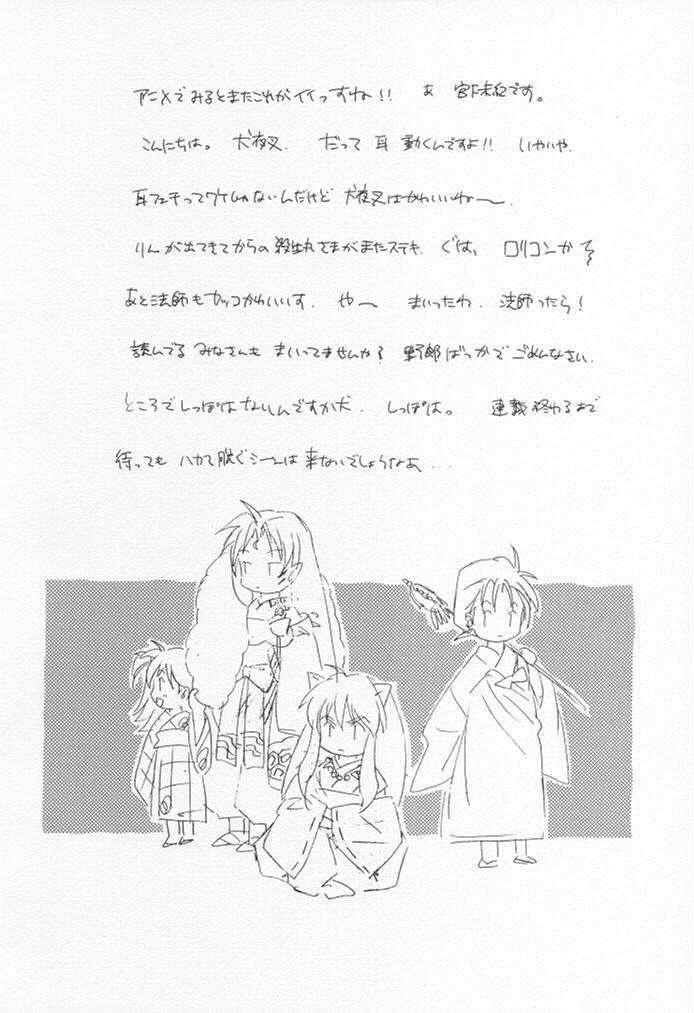 アニメでみるとまたこれがイイっすね!! あ 宮下未紀です。
こんにちは。 犬夜叉. だって 耳 動くんですよ!! いやいや.
耳フェチってワケじゃないんだけど 犬夜叉はかわいいねー.
りんが出てきてからの殺生丸さまがまたステキ. ぐは, ロリコンかで
あと法師もカッコかわいいす. やー まいったわ. 法師ったら!
読んでる みなさんも まいってませんか? 野郎ばっかでごめんなさい.
ところでしっぽはないんですか犬. しっぽは。 連載終わるまで
待っても ハカマ脱ぐシーンは来ないでしょうなあ...